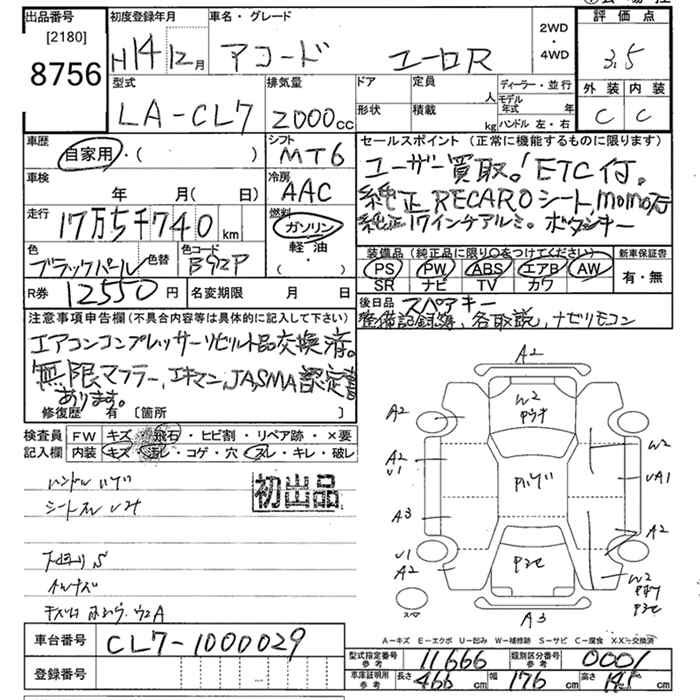 出品番号
[2180]
8756
初度登録年月
H14 12月
車名・グレード
アコード ユーロR
2WD
・
4WD
評価点
3.5
外装 内装
C C
型式
LA-CL7
排気量
2000cc
ドア
定員
人
形状
積載
kg
ディーラー・並行
モデル年式 年
ハンドル 左・右
車歴
自家用・( )
シフト
MT6
車検
年 月( 日)
冷房
AAC
走行
17万5千740km
燃料
ガソリン
軽・油
( )
色
ブラックパール
色替
色コード
B92P
R券 12550円
名変期限 月 日
セールスポイント(正常に機能するものに限ります)
ユーザー買取。! ETC付。
純正RECAROシート,momo
純正17インチアルミ。
装備品(純正品に限り○をつけてください)
PS PW ABS エアB AW
SR ナビ TV カワ
新車保証書
有・無
後日品 スペアキー
整備記録簿、各取説、ナビリモコン
注意事項申告欄(不具合内容等は具体的に記入して下さい)
エアコンコンプレッサーリビルト品交換済。
無限マフラー,エキマン,JASMA認定書
あります。
修復歴 有〔箇所 〕
検査員
記入欄
FW キズ・飛石・ヒビ割・リペア跡・×要
内装 キズ・汚レ・コゲ・穴・スレ・キレ・破レ
ハンドルハゲ
初出品
A2
A2
W2
A2
U1
W2
UA1
A3
A2
U1
A2
W2
A3
A−キズ E−エクボ U−凹み W−補修跡 S−サビ C−腐食 X・XX−交換済
車台番号 CL7-1000029
登録番号
型式指定番号
参考
11666
類別区分番号
参考
0001
車庫証明用
参考
長さ 466cm
幅 176cm
高さ 145cm